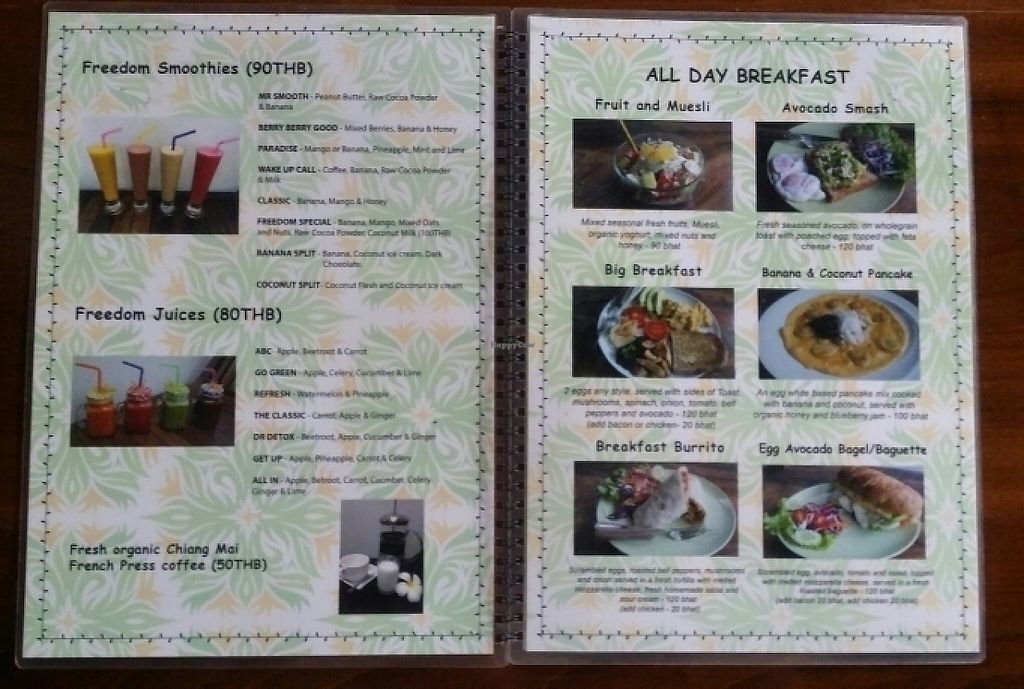 Freedom Smoothies (90THB)
MR SMOOTH - Peanut Butter, Raw Cocoa Powder
& Banana
BERRY BERRY GOOD - Mixed Berries, Banana & Honey
PARADISE - Mango or Banana, Pineapple, Mint and Lime
WAKE UP CALL - Coffee, Banana, Raw Cocoa Powder
& Milk
CLASSIC - Banana, Mango & Honey
FREEDOM SPECIAL - Banana, Mango, Mixed Oats
and Nuts, Raw Cocoa Powder, Coconut Milk (100THB)
BANANA SPLIT - Banana, Coconut ice cream, Dark
Chocolate.
COCONUT SPLIT- Coconut Flesh and Coconut ice cream
Freedom Juices (80THB)
ABC- Apple, Beetroot & Carrot
GO GREEN - Apple, Celery, Cucumber & Lime
REFRESH - Watermelon & Pineapple
THE CLASSIC - Carrot, Apple & Ginger
DR DETOX - Beetroot, Apple, Cucumber & Ginger
GET UP - Apple, Pineapple, Carrot & Celery
ALL IN - Apple, Betroot, Carrot, Cucmber, Celery
Ginger & Lime
Fresh organic Chiang Mai
French Press coffee (50THB)
HappyCow
ALL DAY BREAKFAST
Fruit and Muesli
Mixed seasonal fresh fruits, Muesli,
organic yoghurt, mixed nuts and
honey - 90 bhat
Avocado Smash
Fresh seasoned avocado, on wholegrain
toast with poached egg, topped with feta
cheese - 120 bhat
Big Breakfast
2 eggs any style, served with sides of Toast,
mushrooms, spinach, onion, tomato, bell
peppers and avocado - 120 bhat
(add bacon or chicken- 20 bhat)
Banana & Coconut Pancake
An egg white based pancake mix cooked
with banana and coconut, served with
organic honey and blueberry jam - 100 bhat
Breakfast Burrito
Scrambled eggs, roasted bell peppers, mushrooms
and onion served in a fresh tortilla with melted
mozzarella cheese, fresh homemade salsa and
sour cream - 120 bhat
(add chicken - 20 bhat)
Egg Avocado Bagel/Baguette
Scrambled egg, avocado, tomato and salad, topped
with melted mozzarella cheese, served in a fresh
toasted baguette - 120 bhat
(add bacon 20 bhat, add chicken 20 bhat)